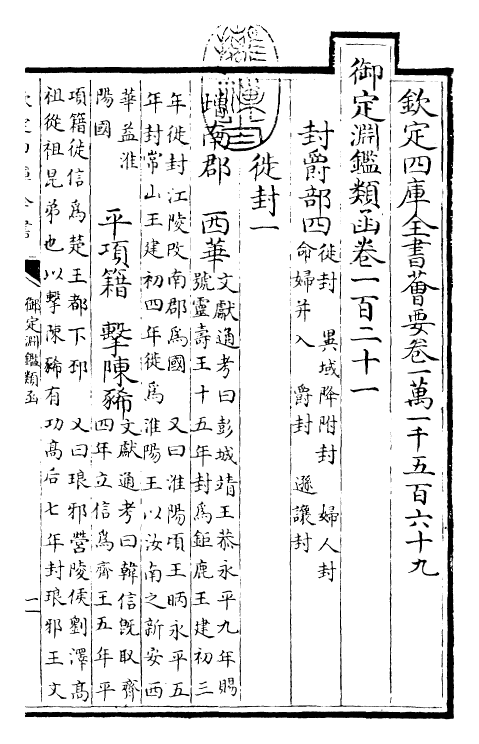 欽定四庫全書薈要卷一萬一千五百六十九
御定淵鑑類函卷一百二十一
封爵部四徙封 異域降附封 婦人封
命婦并入 爵封 遜讓封
徙封一
南郡 西華文獻通考曰彭城靖王恭永平九年賜
號靈壽王十五年封爲鉅鹿王建初三
年徙封江陵改南郡爲國 又曰淮陽頃王昞永平五
年封常山王建初四年徙爲淮陽王以汝南之新安西
華益淮
陽國
平項籍 擊陳豨文獻通考曰韓信既取齊
四年立信爲齊王五年平
項籍徙信爲楚王都下邳 又曰琅邪營陵侯劉澤高
祖從祖昆弟也以擊陳豨有功高后七年封琅邪王文
御定淵鑑類函
一